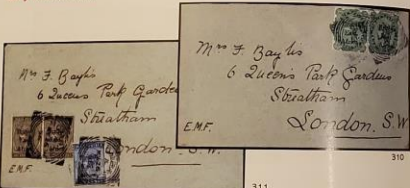 Mrs F. Baylis
6 Queens Park Gardens
Streatham
London. S.W.
E.M.F.
310
Mrs F. Baylis
6 Queens Park Garde
Streatham
London. S.W.
E.M.F.
311